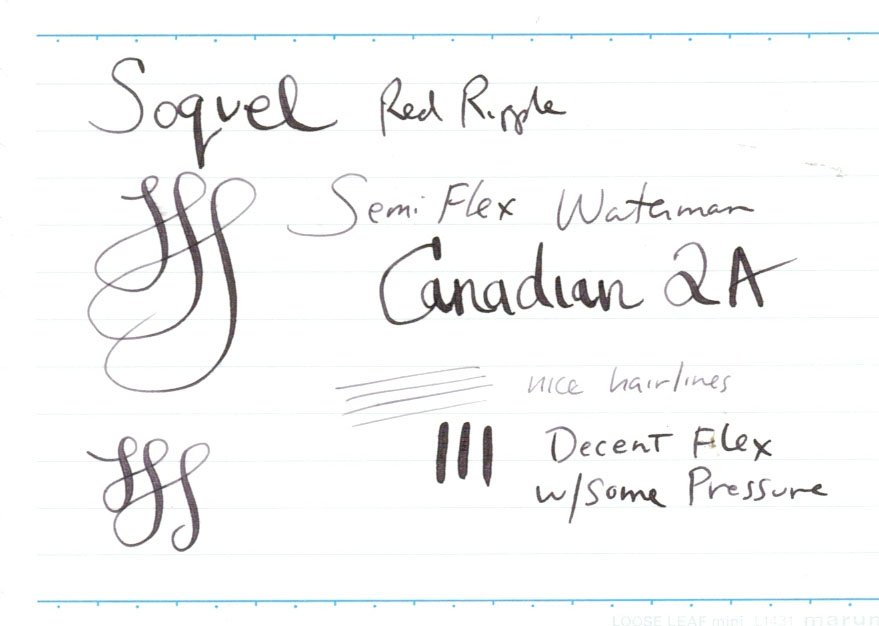 Soquel Red Ripple
Semi Flex Waterman
Canadian 2A
nice hairlines
Decent Flex
w/some Pressure
LOOSE LEAF mini L1431 maru